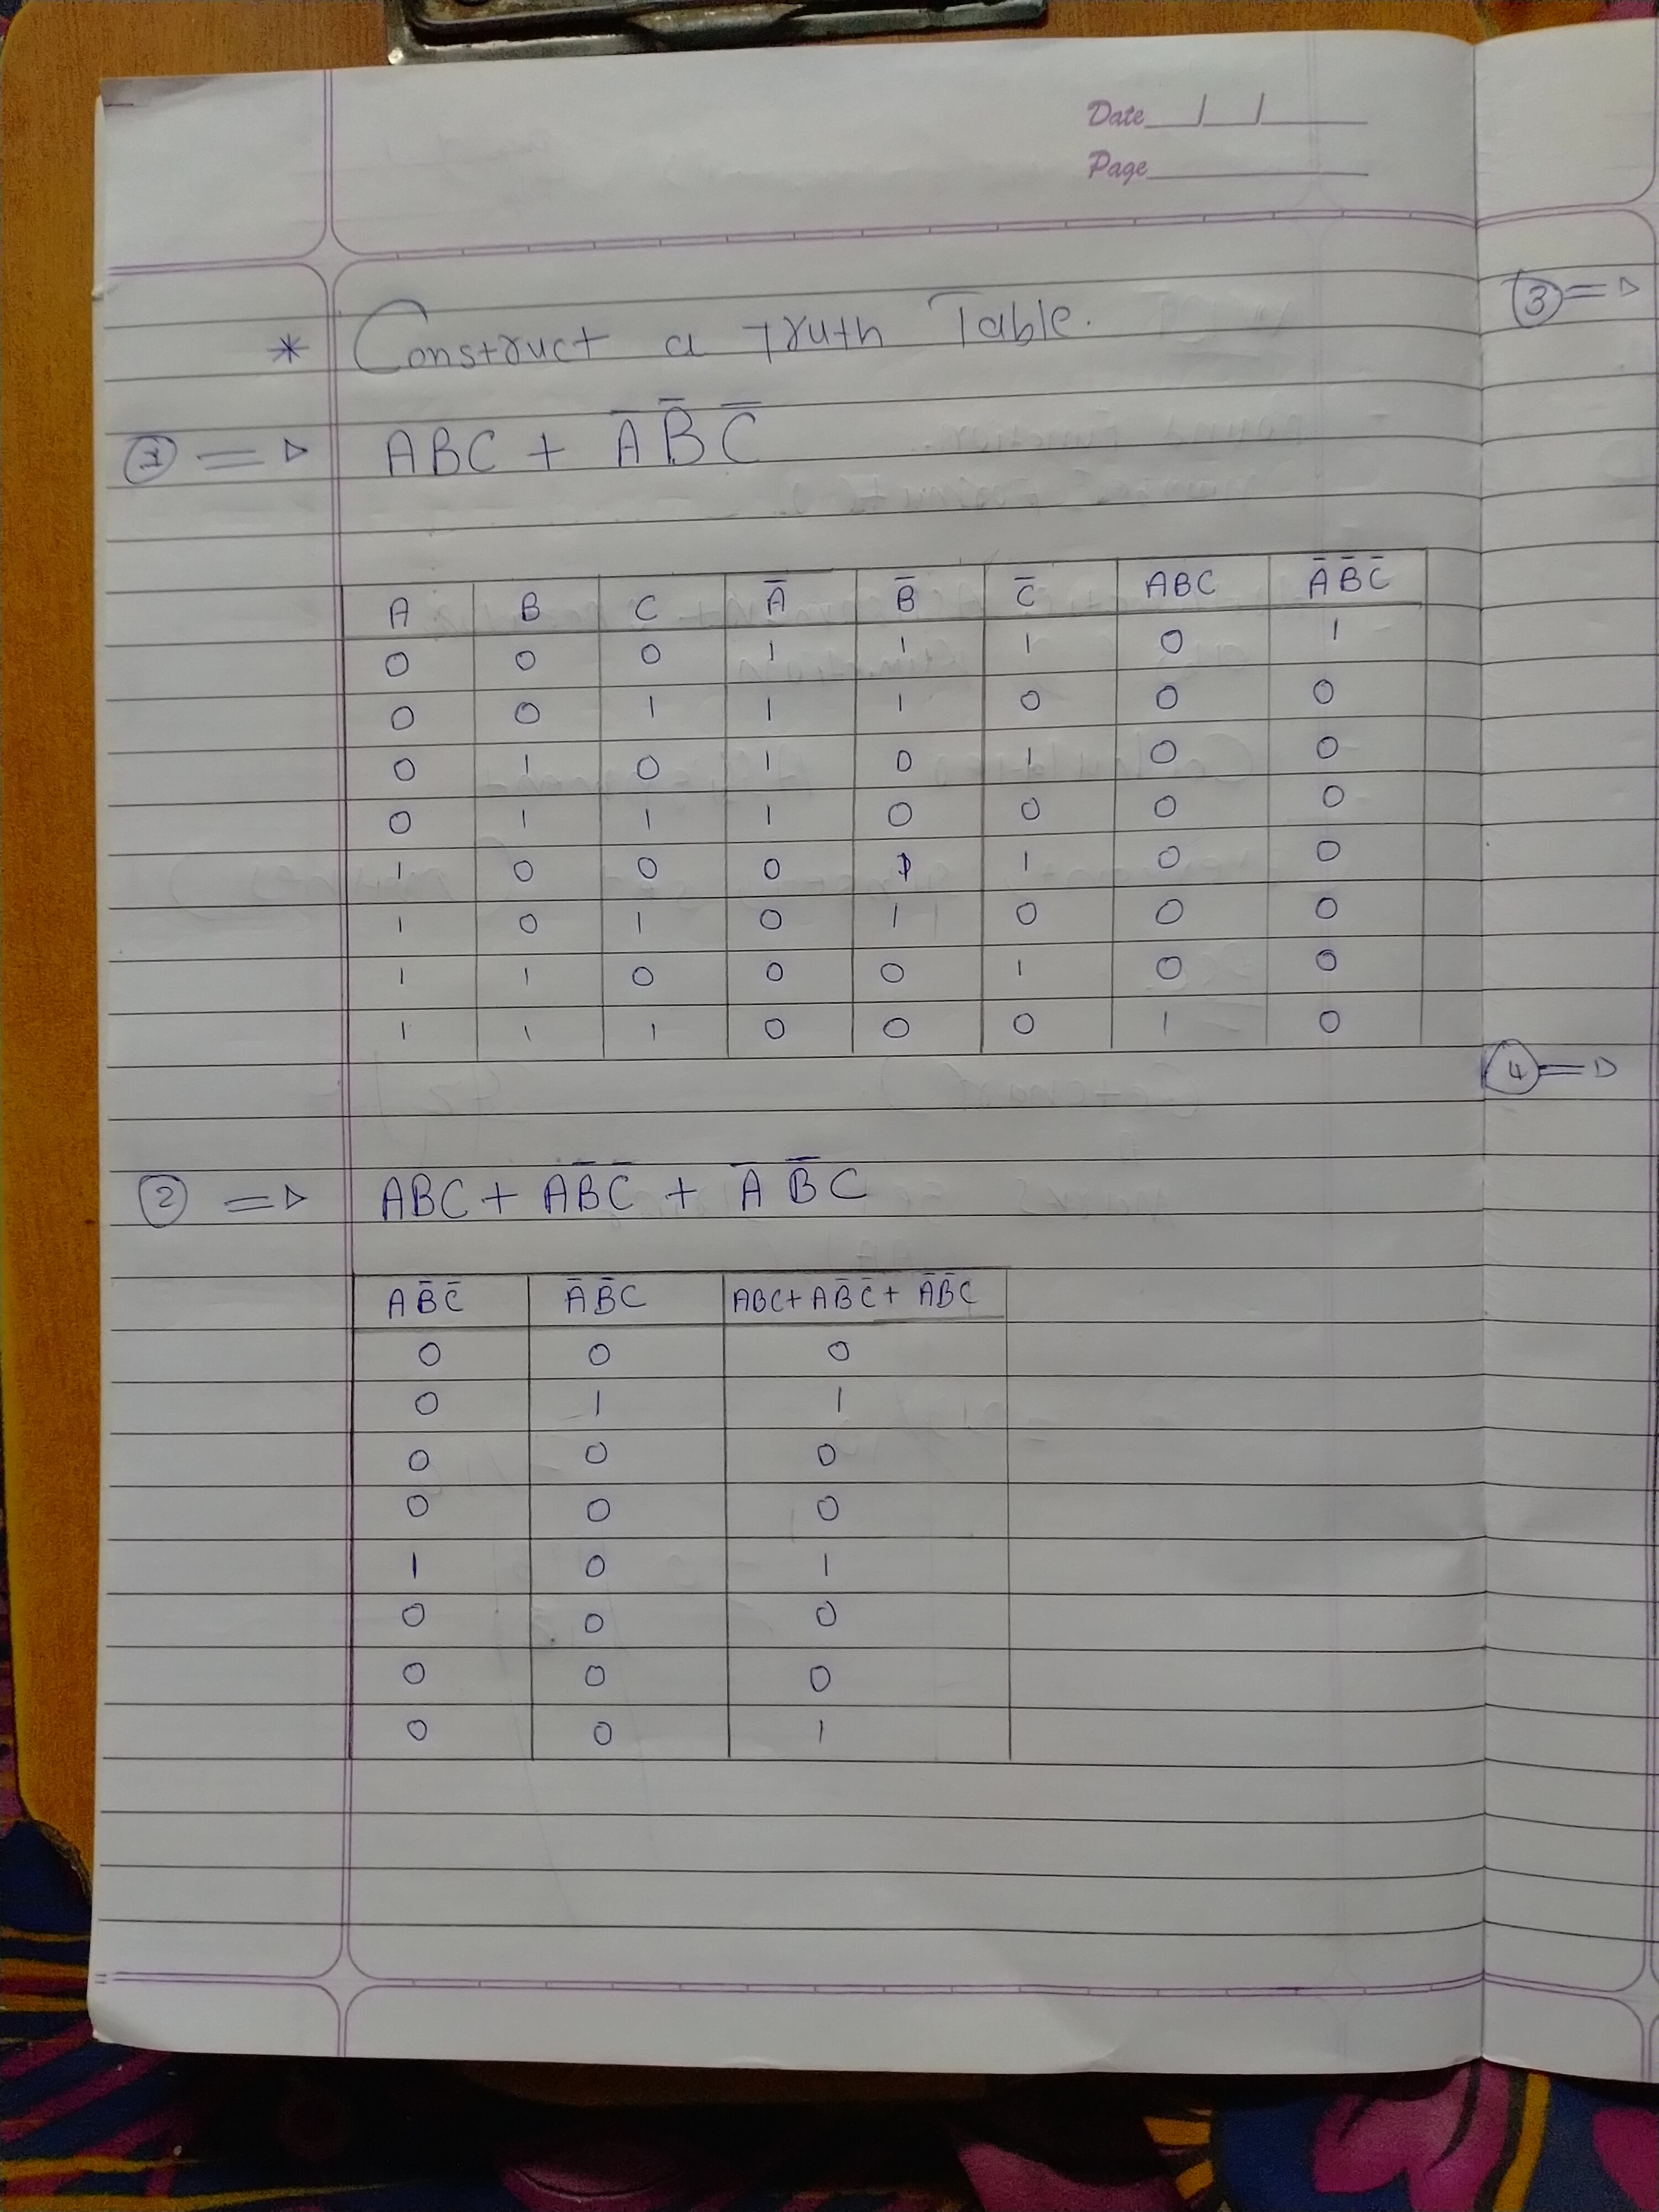 Date
Page
* Construct a Truth Table.
① ⇒ ABC + A̅ B̅ C̅
A B C A̅ B̅ C̅ ABC A̅B̅C̅
0 0 0 1 1 1 0 1
0 0 1 1 1 0 0 0
0 1 0 1 0 1 0 0
0 1 1 1 0 0 0 0
1 0 0 0 1 1 0 0
1 0 1 0 1 0 0 0
1 1 0 0 0 1 0 0
1 1 1 0 0 0 1 0
② ⇒ ABC + AB̅C̅ + A̅ B̅ C
AB̅C̅ A̅B̅C ABC+AB̅C̅+A̅B̅C
0 0 0
0 1 1
0 0 0
0 0 0
1 0 1
0 0 0
0 0 0
0 0 1
③ ⇒
④ ⇒